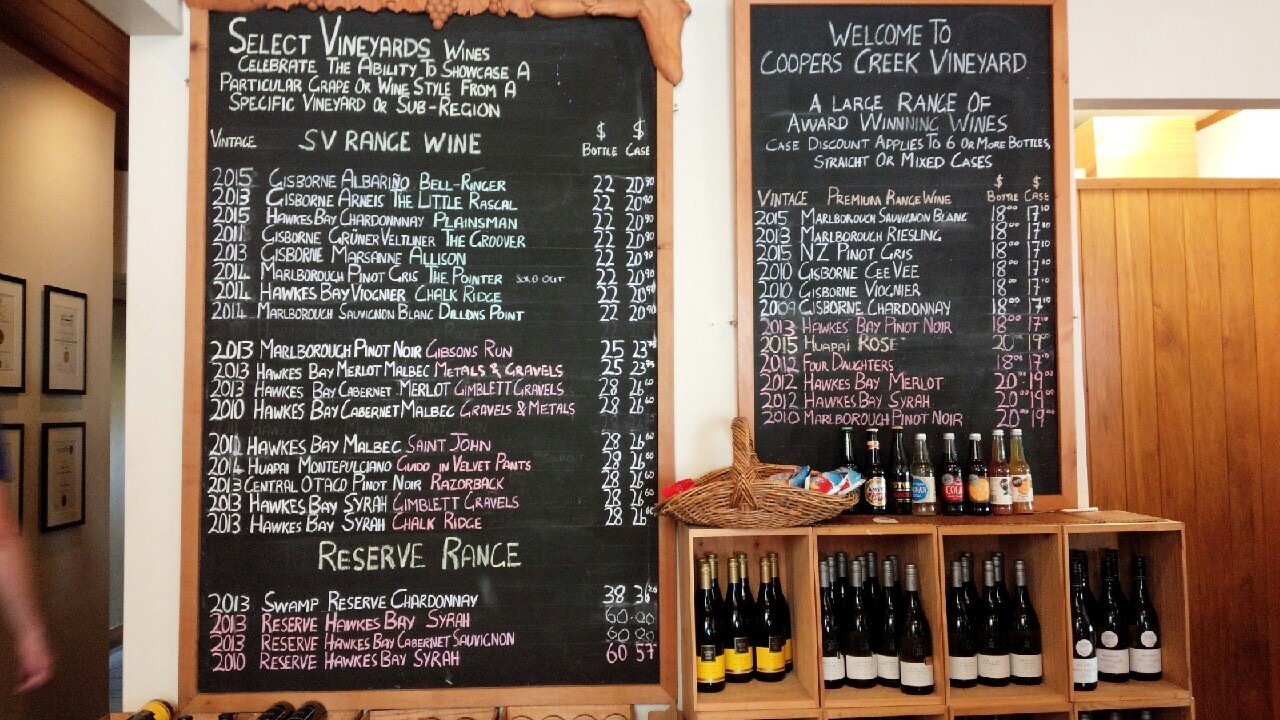 SELECT VINEYARDS WINES
CELEBRATE THE ABILITY TO SHOWCASE A
PARTICULAR GRAPE OR WINE STYLE FROM A
SPECIFIC VINEYARD OR SUB-REGION
VINTAGE SV RANGE WINE $ BOTTLE $ CASE
2015 GISBORNE ALBARIÑO BELL-RINGER 22 20⁹⁰
2013 GISBORNE ARNEIS THE LITTLE RASCAL 22 20⁹⁰
2015 HAWKES BAY CHARDONNNAY PLAINSMAN 22 20⁹⁰
GISBORNE GRÜNER VELTLINER THE GROOVER 22 20⁹⁰
2013 GISBORNE MARSANNE ALLISON 22 20⁹⁰
2014 MARLBOROUGH PINOT GRIS THE POINTER SOLD OUT 22 20⁹⁰
2014 HAWKES BAY VIOGNIER CHALK RIDGE 22 20⁹⁰
2014 MARLBOROUGH SAUVIGNON BLANC DILLONS POINT 22 20⁹⁰
2013 MARLBOROUGH PINOT NOIR GIBSONS RUN 25 23⁷⁵
2013 HAWKES BAY MERLOT MALBEC METALS & GRAVELS 25 23⁷⁵
2013 HAWKES BAY CABERNET MERLOT GIMBLETT GRAVELS 28 26⁶⁰
2010 HAWKES BAY CABERNET MALBEC GRAVELS & METALS 28 26⁶⁰
HAWKES BAY MALBEC SAINT JOHN 28 26⁶⁰
2014 HUAPAI MONTEPULCIANO GUIDO IN VELVET PANTS 28 26⁶⁰
2013 CENTRAL OTAGO PINOT NOIR RAZORBACK 28 26⁶⁰
2013 HAWKES BAY SYRAH GIMBLETT GRAVELS 28 26⁶⁰
2013 HAWKES BAY SYRAH CHALK RIDGE 28 26⁶⁰
RESERVE RANGE
2013 SWAMP RESERVE CHARDONNAY 38 36
2013 RESERVE HAWKES BAY SYRAH 60-00
2013 RESERVE HAWKES BAY CABERNET SAUVIGNON
2010 RESERVE HAWKES BAY SYRAH 60 57
WELCOME TO
COOPERS CREEK VINEYARD
A LARGE RANGE OF
AWARD WINNNING WINES
CASE DISCOUNT APPLIES TO 6 OR MORE BOTTLES,
STRAIGHT OR MIXED CASES
VINTAGE PREMIUM RANGE WINE $ BOTTLE $ CASE
2015 MARLBOROUGH SAUVIGNON BLANC 18⁰⁰ 17¹⁰
2013 MARLBOROUGH RIESLING 18⁰⁰ 17¹⁰
2015 NZ PINOT GRIS 18⁰⁰ 17¹⁰
2010 GISBORNE GEE VEE 18⁰⁰ 17¹⁰
2010 GISBORNE VIOGNIER 18⁰⁰ 17¹⁰
2009 GISBORNE CHARDONNAY 18⁰⁰ 17¹⁰
2013 HAWKES BAY PINOT NOIR 18⁰⁰ 17¹⁰
2015 HUAPAI ROSE 20⁰⁰ 19⁰⁰
2012 FOUR DAUGHTERS 18⁰⁰ 17¹⁰
2012 HAWKES BAY MERLOT 20⁰⁰ 19⁰⁰
2012 HAWKES BAY SYRAH 20⁰⁰ 19⁰⁰
2010 MARLBOROUGH PINOT NOIR 20⁰⁰ 19⁰⁰
COLA